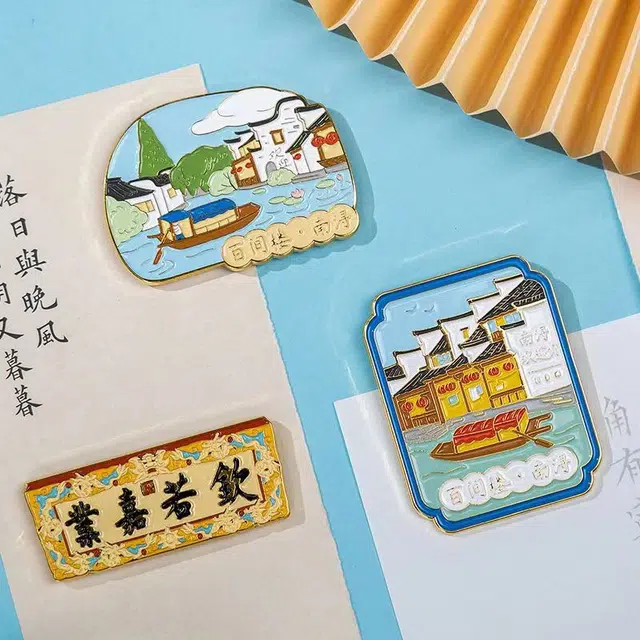 落日與晚風
又暮暮
百间楼·南浔
百间楼·南浔
欽若嘉業
角有